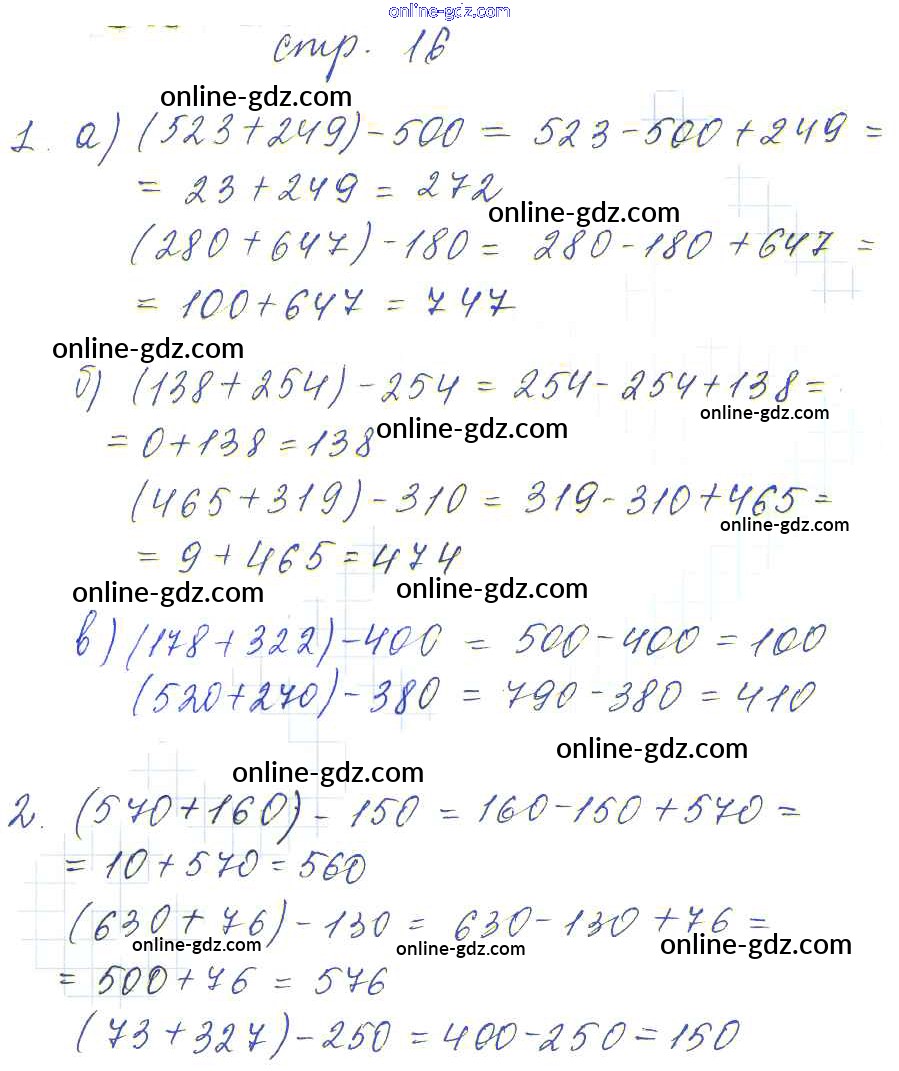 online-gdz.com
стр. 16
online-gdz.com
1. а) (523+249)-500 = 523-500+249 =
= 23+249 = 272
online-gdz.com
(280+647)-180 = 280-180+647 =
= 100+647 = 747
online-gdz.com
б) (138+254)-254 = 254-254+138 =
online-gdz.com
= 0+138 = 138
online-gdz.com
(465+319)-310 = 319-310+465 =
online-gdz.com
= 9+465 = 474
online-gdz.com online-gdz.com
в) (178+322)-400 = 500-400 = 100
(520+270)-380 = 790-380 = 410
online-gdz.com
online-gdz.com
2. (570+160)-150 = 160-150+570 =
= 10+570 = 560
(630+76)-130 = 630-130+76 =
online-gdz.com online-gdz.com online-gdz.com
= 500+76 = 576
(73+327)-250 = 400-250 = 150